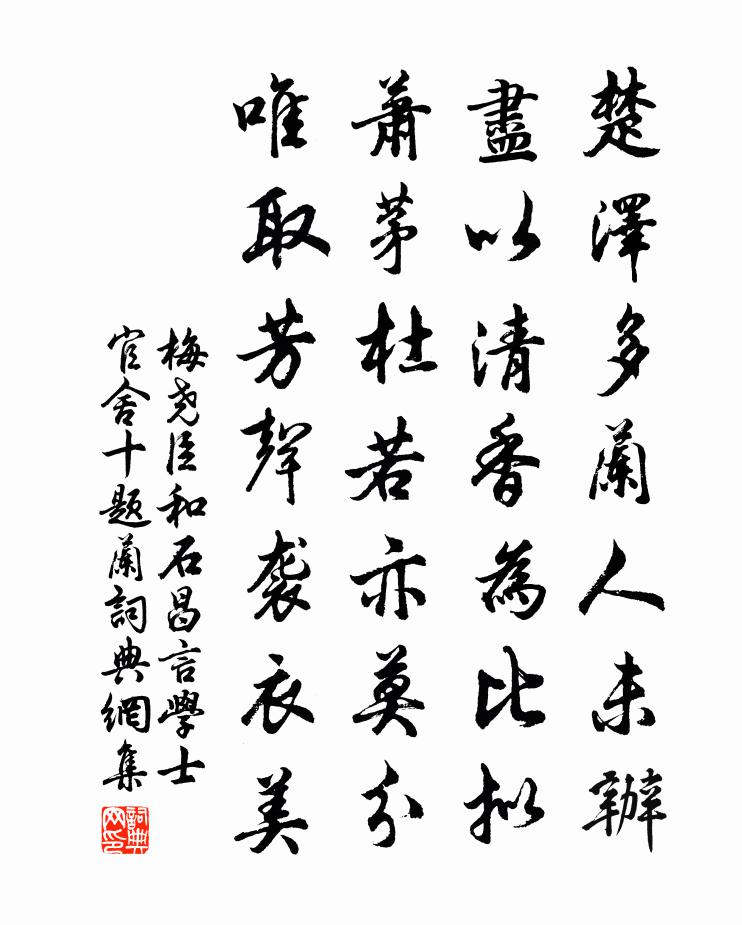 楚澤多蘭人未辦
盡以清香為比拟
蕭茅杜若亦莫分
唯取芳聲袭衣美
梅尧臣和石昌言學士
官舍十题蘭詞典網集
詞典
网印